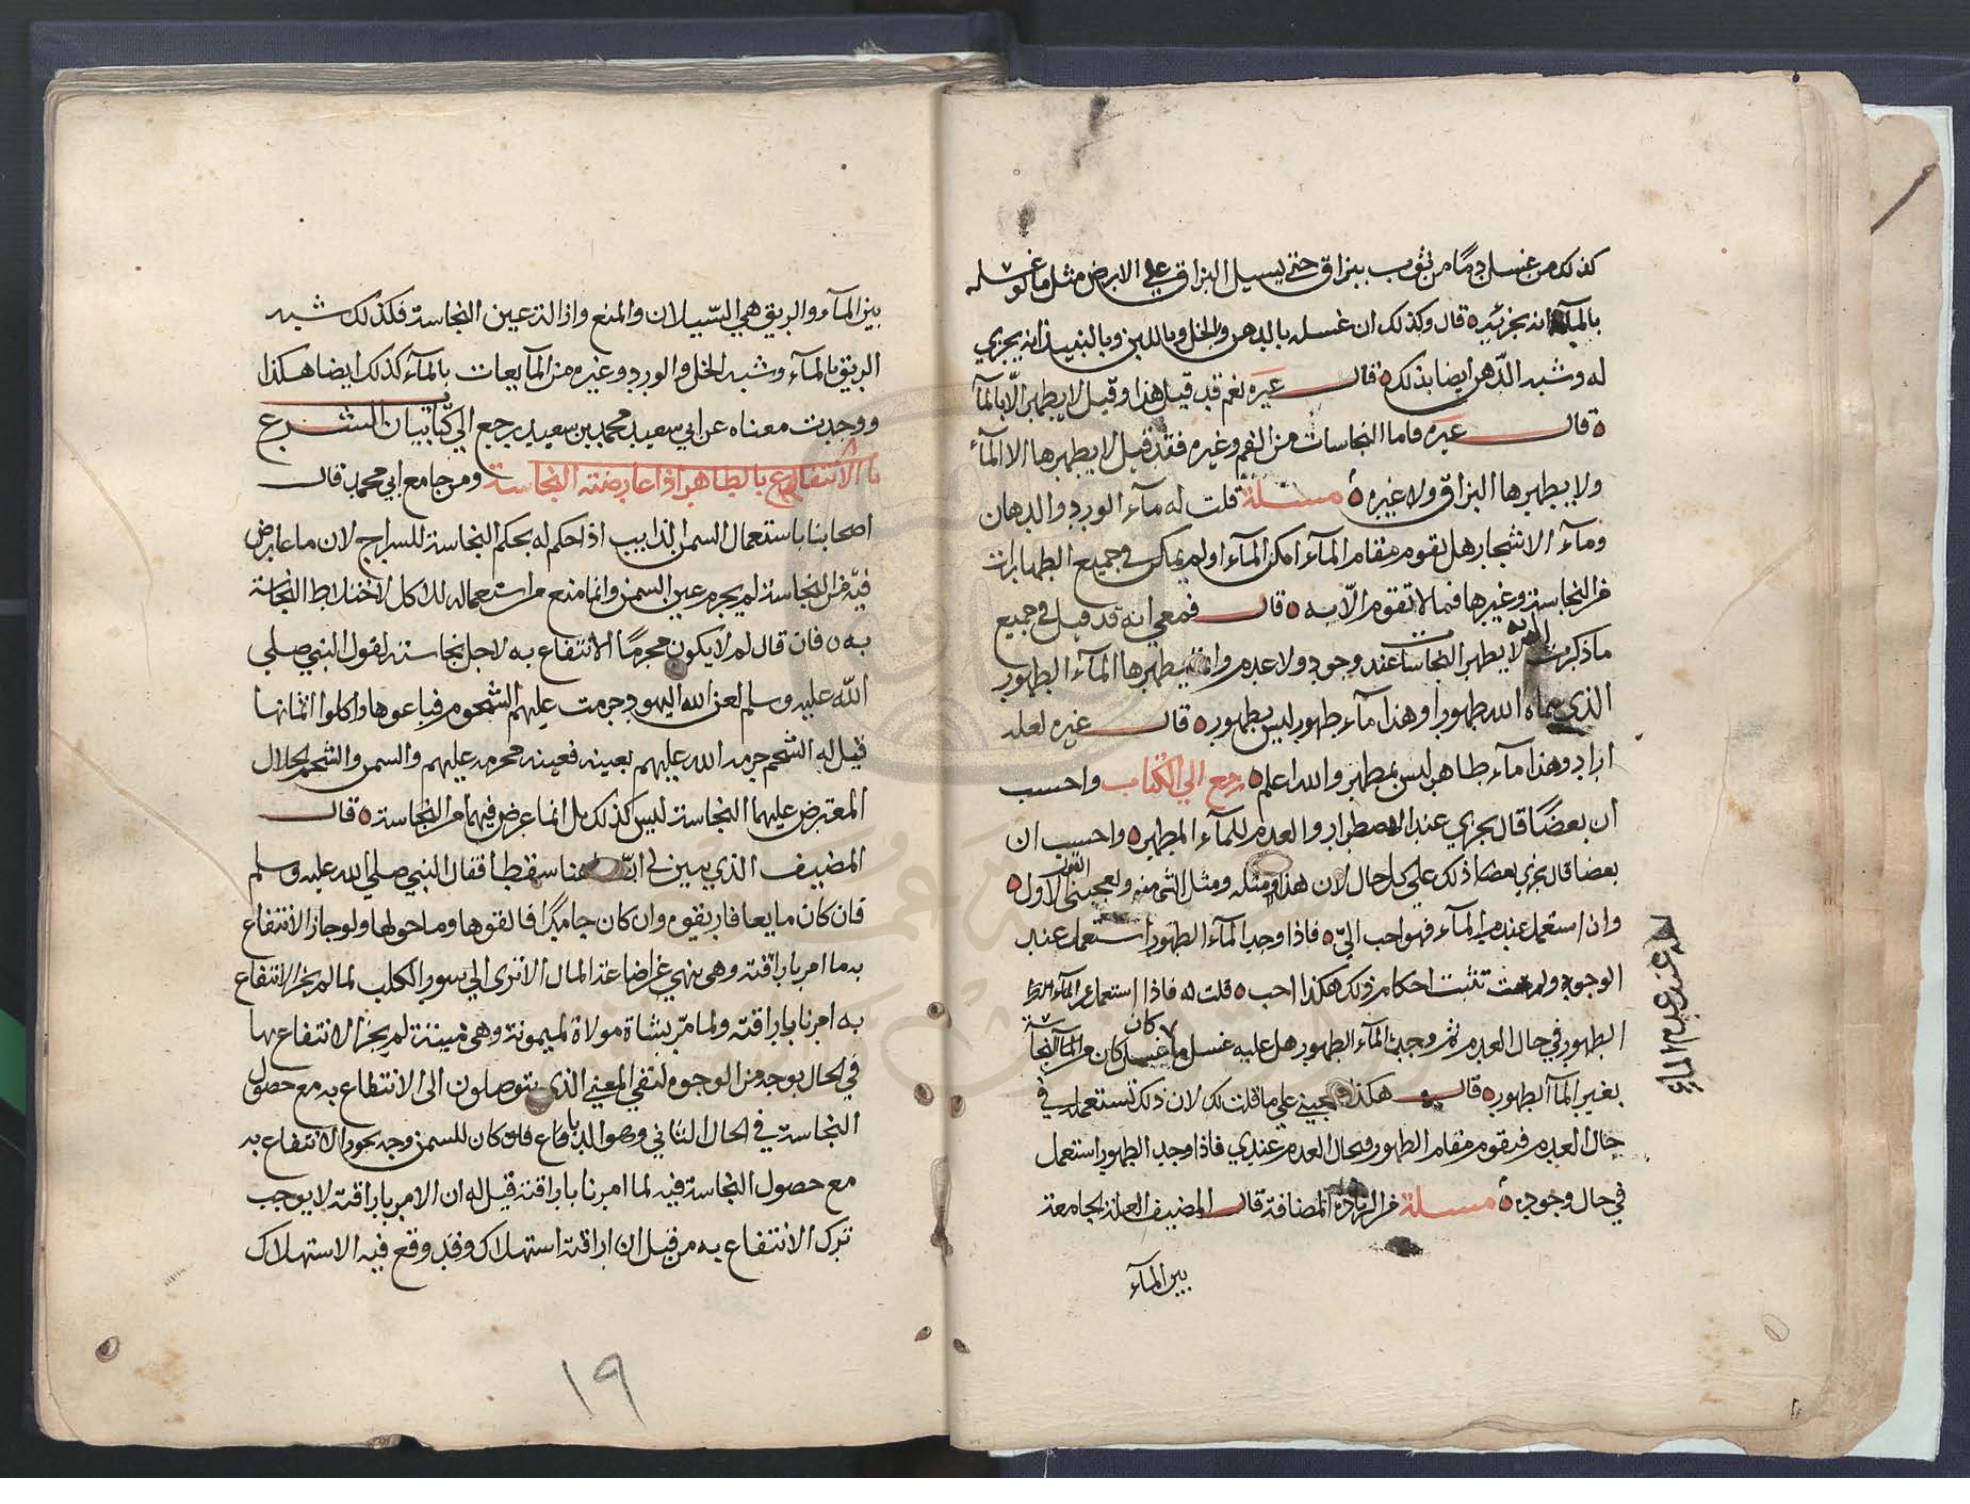 كذلك من غسل دما من ثوب ببزاق حتى يسيل البزاق على الارض مثل ما لو غسله
بالماء انه يجزئه ه قال وكذلك ان غسله بالدهن والخل وباللبن وبالنبيذ انه يجزي
له وشبه الدهن ايضا بذلك ه قال غيره نعم قد قيل هذا وقيل لا يطهر الا بالمآء
ه قال غيره فاما النجاسات من الفم وغيره فقد قيل لا يطهرها الا المآء
ولا يطهرها البزاق ولا غيره ه مسئلة قلت له مآء الورد والدهان
ومآء الاشجار هل يقوم مقام المآء امكن المآء او لم يمكن في جميع الطهارات
من النجاسة وغيرها فيما لا تقوم الا به ه قال فمعي انه قد قيل في جميع
ما ذكرت انه لا يطهر النجاسات عند وجود ولا عدم وانما يطهرها المآء الطهور
الذي سماه الله طهورا وهذا مآء طهور ليس بطهور ه قال غيره لعله
اراد وهذا مآء طاهر ليس بمطهر والله اعلم ه رجع الى الكتاب واحسب
ان بعضا قال يجزي عند الاضطرار والعدم للمآء المطهر ه واحسب ان
بعضا قال يجزي بعضا ذلك على كل حال لان هذا ومثله ومثل الشئ منه ويعجبني القول الاول ه
وان استعمل عند عدم المآء فهو احب الي ه فاذا وجد المآء الطهور استعمل عند
الوجود ولم تثبت احكام ذلك هكذا احب ه قلت له فاذا استعمل غير المآء
الطهور في حال العدم ثم وجد المآء الطهور هل عليه غسل ما كان غسل من النجاسة
بغير المآ الطهور ه قال هكذا يعجبني على ما قلت لك لان ذلك تستعمل في
حال العدم فيقوم مقام الطهور في حال العدم عندي فاذا وجد الطهور استعمل
في حال وجوده ه مسئلة من الزيادة المضافة قال المضيف العلة الجامعة
بين المآء
عند عدم الماء
بين المآء والريق هي السيلان والمنع واذا لة عين النجاسة فكذلك شبه
الريق بالمآء وشبه الخل والورد وغيره من المآيعات بالمآء كذلك ايضا هكذا
ووجدت معناه عن ابي سعيد محمد بن سعيد رجع الى كتاب بيان الشرع
با الانتفاع بالطاهر اذا عارضته النجاسة ومن جامع ابي محمد قال
اصحابنا باستعمال السمن الذايب اذا حكم له بحكم النجاسة للسراج لان ما عارض
فيه من النجاسة لم يحرم عين السمن وانما منع من استعماله للاكل لاختلاط النجاسة
به ه فان قال لم لا يكون محرما الانتفاع به لاجل نجاسته لقول النبي صلى
الله عليه وسلم لعن الله اليهود حرمت عليهم الشحوم فباعوها واكلوا اثمانها
قيل له الشحم حرمه الله عليهم بعينه فعينه محرمه عليهم والسمن والشحم الحلال
المعترض عليهما النجاسة ليس كذلك بل انما عرض فيهما من النجاسة ه قال
المضيف الذي يبين لي ان هنا سقطا فقال النبي صلى الله عليه وسلم
فان كان مايعا فاريقوه وان كان جامدا فالقوها وما حولها ولو جاز الانتفاع
به ما امر باراقته وهي نهي عن اضاعة المال الا ترى الى سور الكلب لما لم يجز الانتفاع
به امرنا باراقته ولما مر بشاة مولاة لميمونة وهي ميتة لم يجز الانتفاع بها
في الحال بوجه من الوجوه لنفي المعنى الذي يتوصلون الى الانتفاع به مع حصول
النجاسة في الحال الثاني وهو الدباغ فلو كان للسمن وجه يجوز الانتفاع به
مع حصول النجاسة فيه لما امرنا باراقته قيل له ان الامر باراقته لا يوجب
ترك الانتفاع به من قبل ان اراقته استهلاك وقد وقع فيه الاستهلاك
١٩